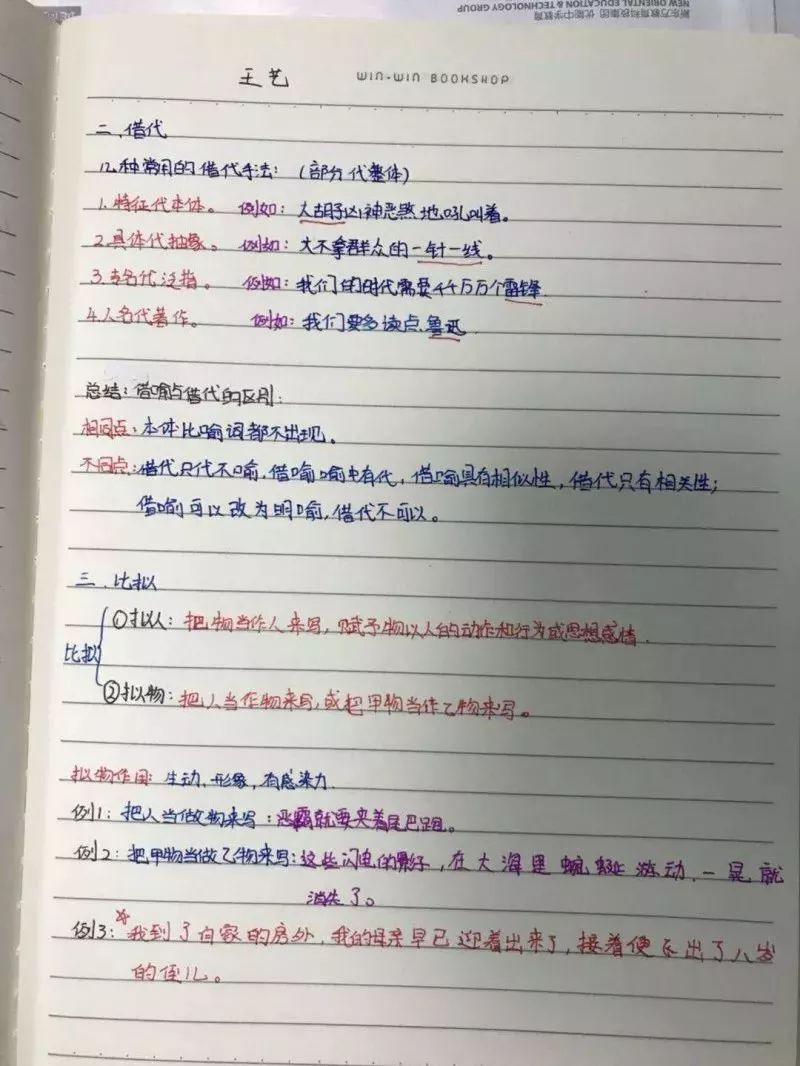 新东方教育科技集团 优能中学教育
NEW ORIENTAL EDUCATION & TECHNOLOGY GROUP
王艺 WIN-WIN BOOKSHOP
二、借代
几种常用的借代手法：（部分代整体）
1.特征代本体。 例如：大胡子凶神恶煞地吼叫着。
2.具体代抽象。 例如：大不拿群众的一针一线。
3.专名代泛指。 例如：我们的时代需要千千万万个雷锋
4.人名代著作。 例如：我们要多读点鲁迅
总结：借喻与借代的区别：
相同点：本体比喻词都不出现。
不同点：借代只代不喻，借喻喻中有代，借喻具有相似性，借代只有相关性；
借喻可以改为明喻，借代不可以。
三、比拟
①拟人：把物当作人来写，赋予物以人的动作和行为或思想感情．
比拟
②拟物：把人当作物来写，或把甲物当作乙物来写。
拟物作用：生动，形象，有感染力
例1：把人当做物来写：恶霸就要夹着尾巴跑。
例2：把甲物当做乙物来写：这些闪电的影子，在大海里蜿蜒游动，一晃就
消失了。
例3：我到了自家的房外，我的母亲早已迎着出来了，接着便飞出了八岁
的侄儿。